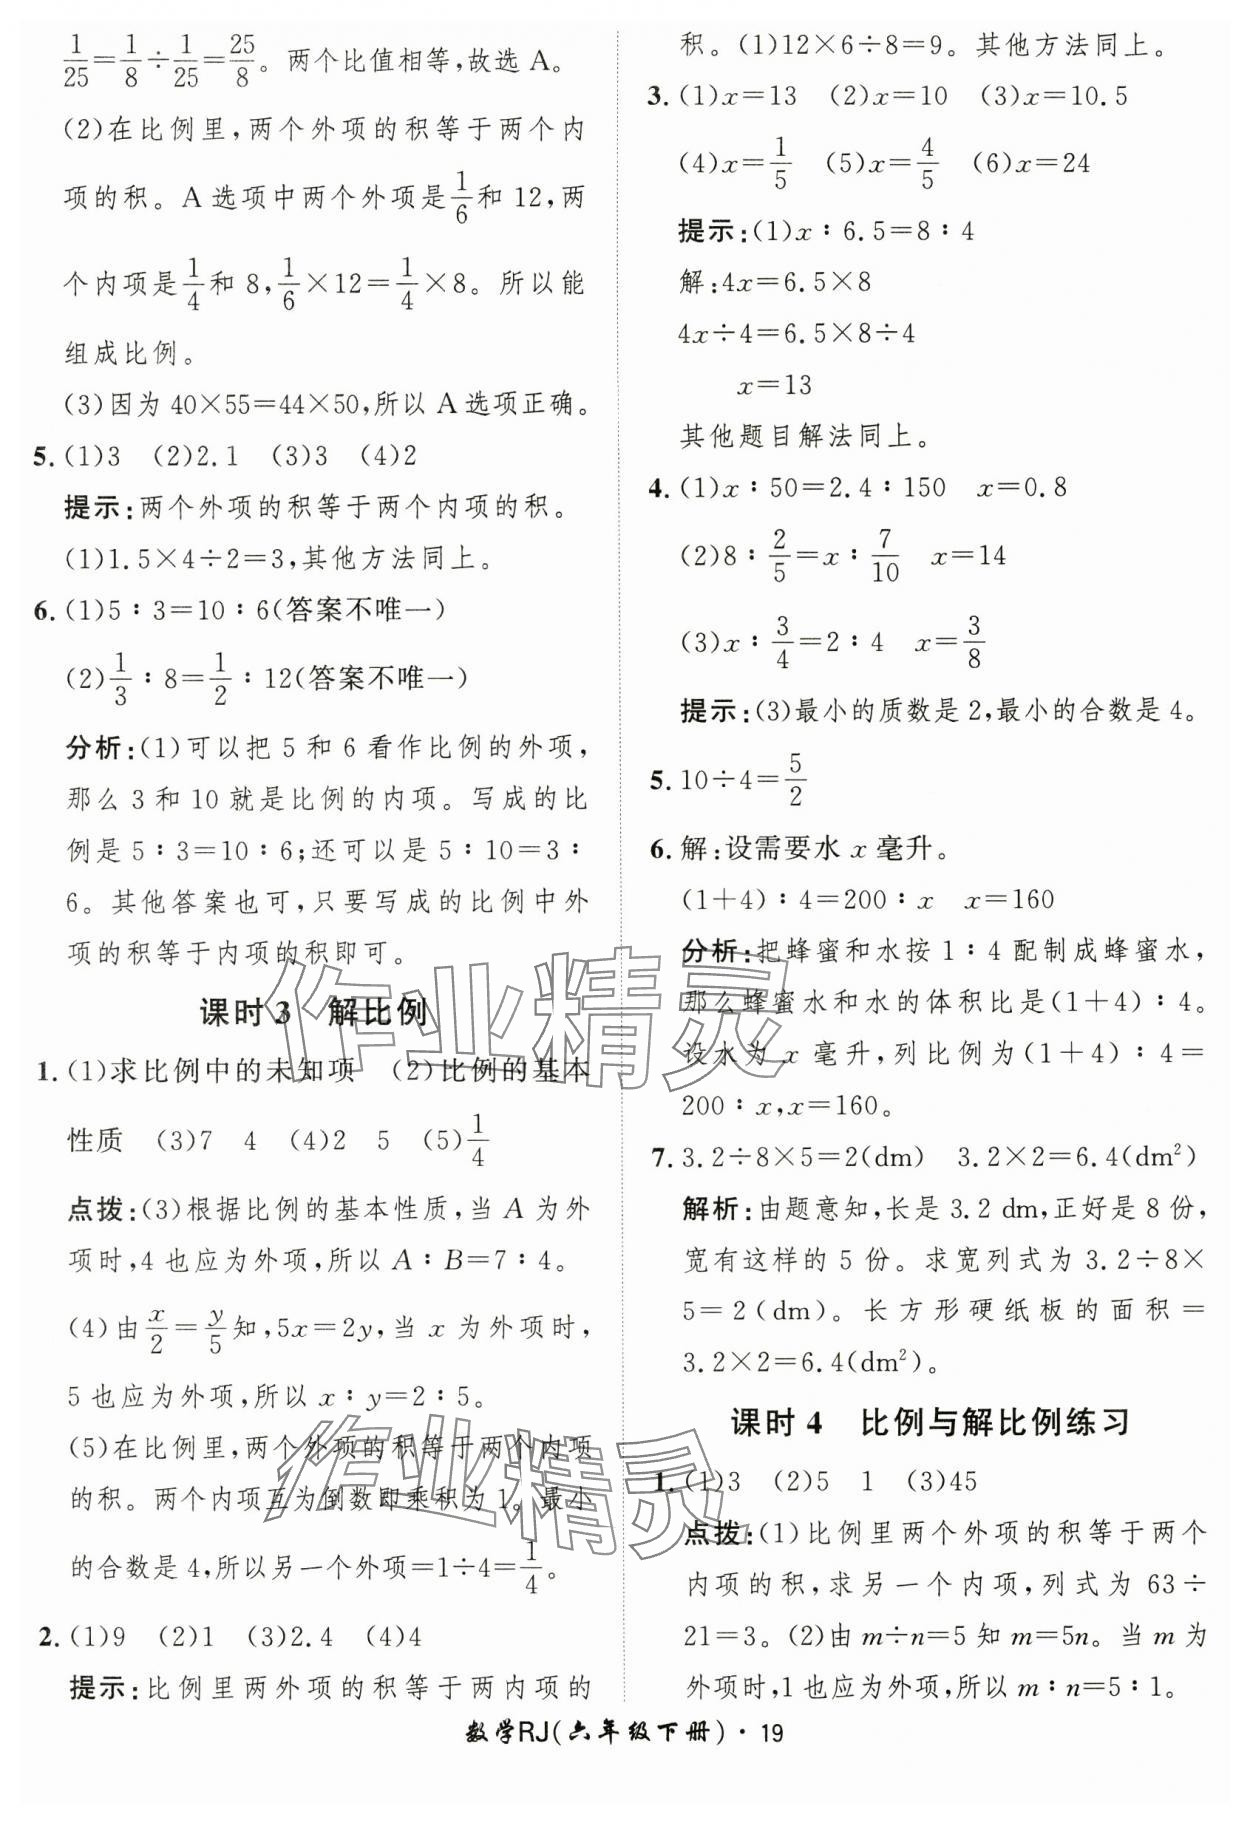 1/25=1/8÷1/25=25/8。两个比值相等,故选 A。
(2)在比例里,两个外项的积等于两个内
项的积。A 选项中两个外项是1/6和 12,两
个内项是1/4和 8,1/6×12=1/4×8。所以能
组成比例。
(3)因为 40×55=44×50,所以 A 选项正确。
5. (1)3 (2)2.1 (3)3 (4)2
提示:两个外项的积等于两个内项的积。
(1)1.5×4÷2=3,其他方法同上。
6. (1)5∶3=10∶6(答案不唯一)
(2)1/3∶8=1/2∶12(答案不唯一)
分析:(1)可以把 5 和 6 看作比例的外项,
那么 3 和 10 就是比例的内项。写成的比
例是 5∶3=10∶6;还可以是 5∶10=3∶
6。其他答案也可,只要写成的比例中外
项的积等于内项的积即可。
课时 3 解比例
1. (1)求比例中的未知项 (2)比例的基本
性质 (3)7 4 (4)2 5 (5)1/4
点拨:(3)根据比例的基本性质,当 A 为外
项时,4 也应为外项,所以 A∶B=7∶4。
(4)由x/2=y/5知,5x=2y,当 x 为外项时,
5 也应为外项,所以 x∶y=2∶5。
(5)在比例里,两个外项的积等于两个内项
的积。两个内项互为倒数即乘积为 1。最小
的合数是 4,所以另一个外项=1÷4=1/4。
2. (1)9 (2)1 (3)2.4 (4)4
提示:比例里两外项的积等于两内项的
积。(1)12×6÷8=9。其他方法同上。
3. (1)x=13 (2)x=10 (3)x=10.5
(4)x=1/5 (5)x=4/5 (6)x=24
提示:(1)x∶6.5=8∶4
解:4x=6.5×8
4x÷4=6.5×8÷4
x=13
其他题目解法同上。
4. (1)x∶50=2.4∶150 x=0.8
(2)8∶2/5=x∶7/10 x=14
(3)x∶3/4=2∶4 x=3/8
提示:(3)最小的质数是 2,最小的合数是 4。
5. 10÷4=5/2
6. 解:设需要水 x 毫升。
(1+4)∶4=200∶x x=160
分析:把蜂蜜和水按 1∶4 配制成蜂蜜水,
那么蜂蜜水和水的体积比是(1+4)∶4。
设水为 x 毫升,列比例为(1+4)∶4=
200∶x,x=160。
7. 3.2÷8×5=2(dm) 3.2×2=6.4(dm²)
解析:由题意知,长是 3.2 dm,正好是 8 份,
宽有这样的 5 份。求宽列式为 3.2÷8×
5=2(dm)。长方形硬纸板的面积=
3.2×2=6.4(dm²)。
课时 4 比例与解比例练习
1. (1)3 (2)5 1 (3)45
点拨:(1)比例里两个外项的积等于两个
内项的积,求另一个内项,列式为 63÷
21=3。(2)由 m÷n=5 知 m=5n。当 m 为
外项时,1 也应为外项,所以 m∶n=5∶1。
数学RJ(六年级下册)·19
作业精灵
作业精灵